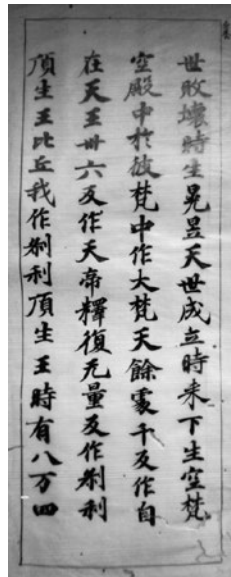 世敗壞時生晃昱天世成立時来下生空梵
空殿中於彼梵中作大梵天餘處千反作自
在天王卅六反作天帝釋復无量反作刹利
頂生王比丘我作刹利頂生王時有八万四